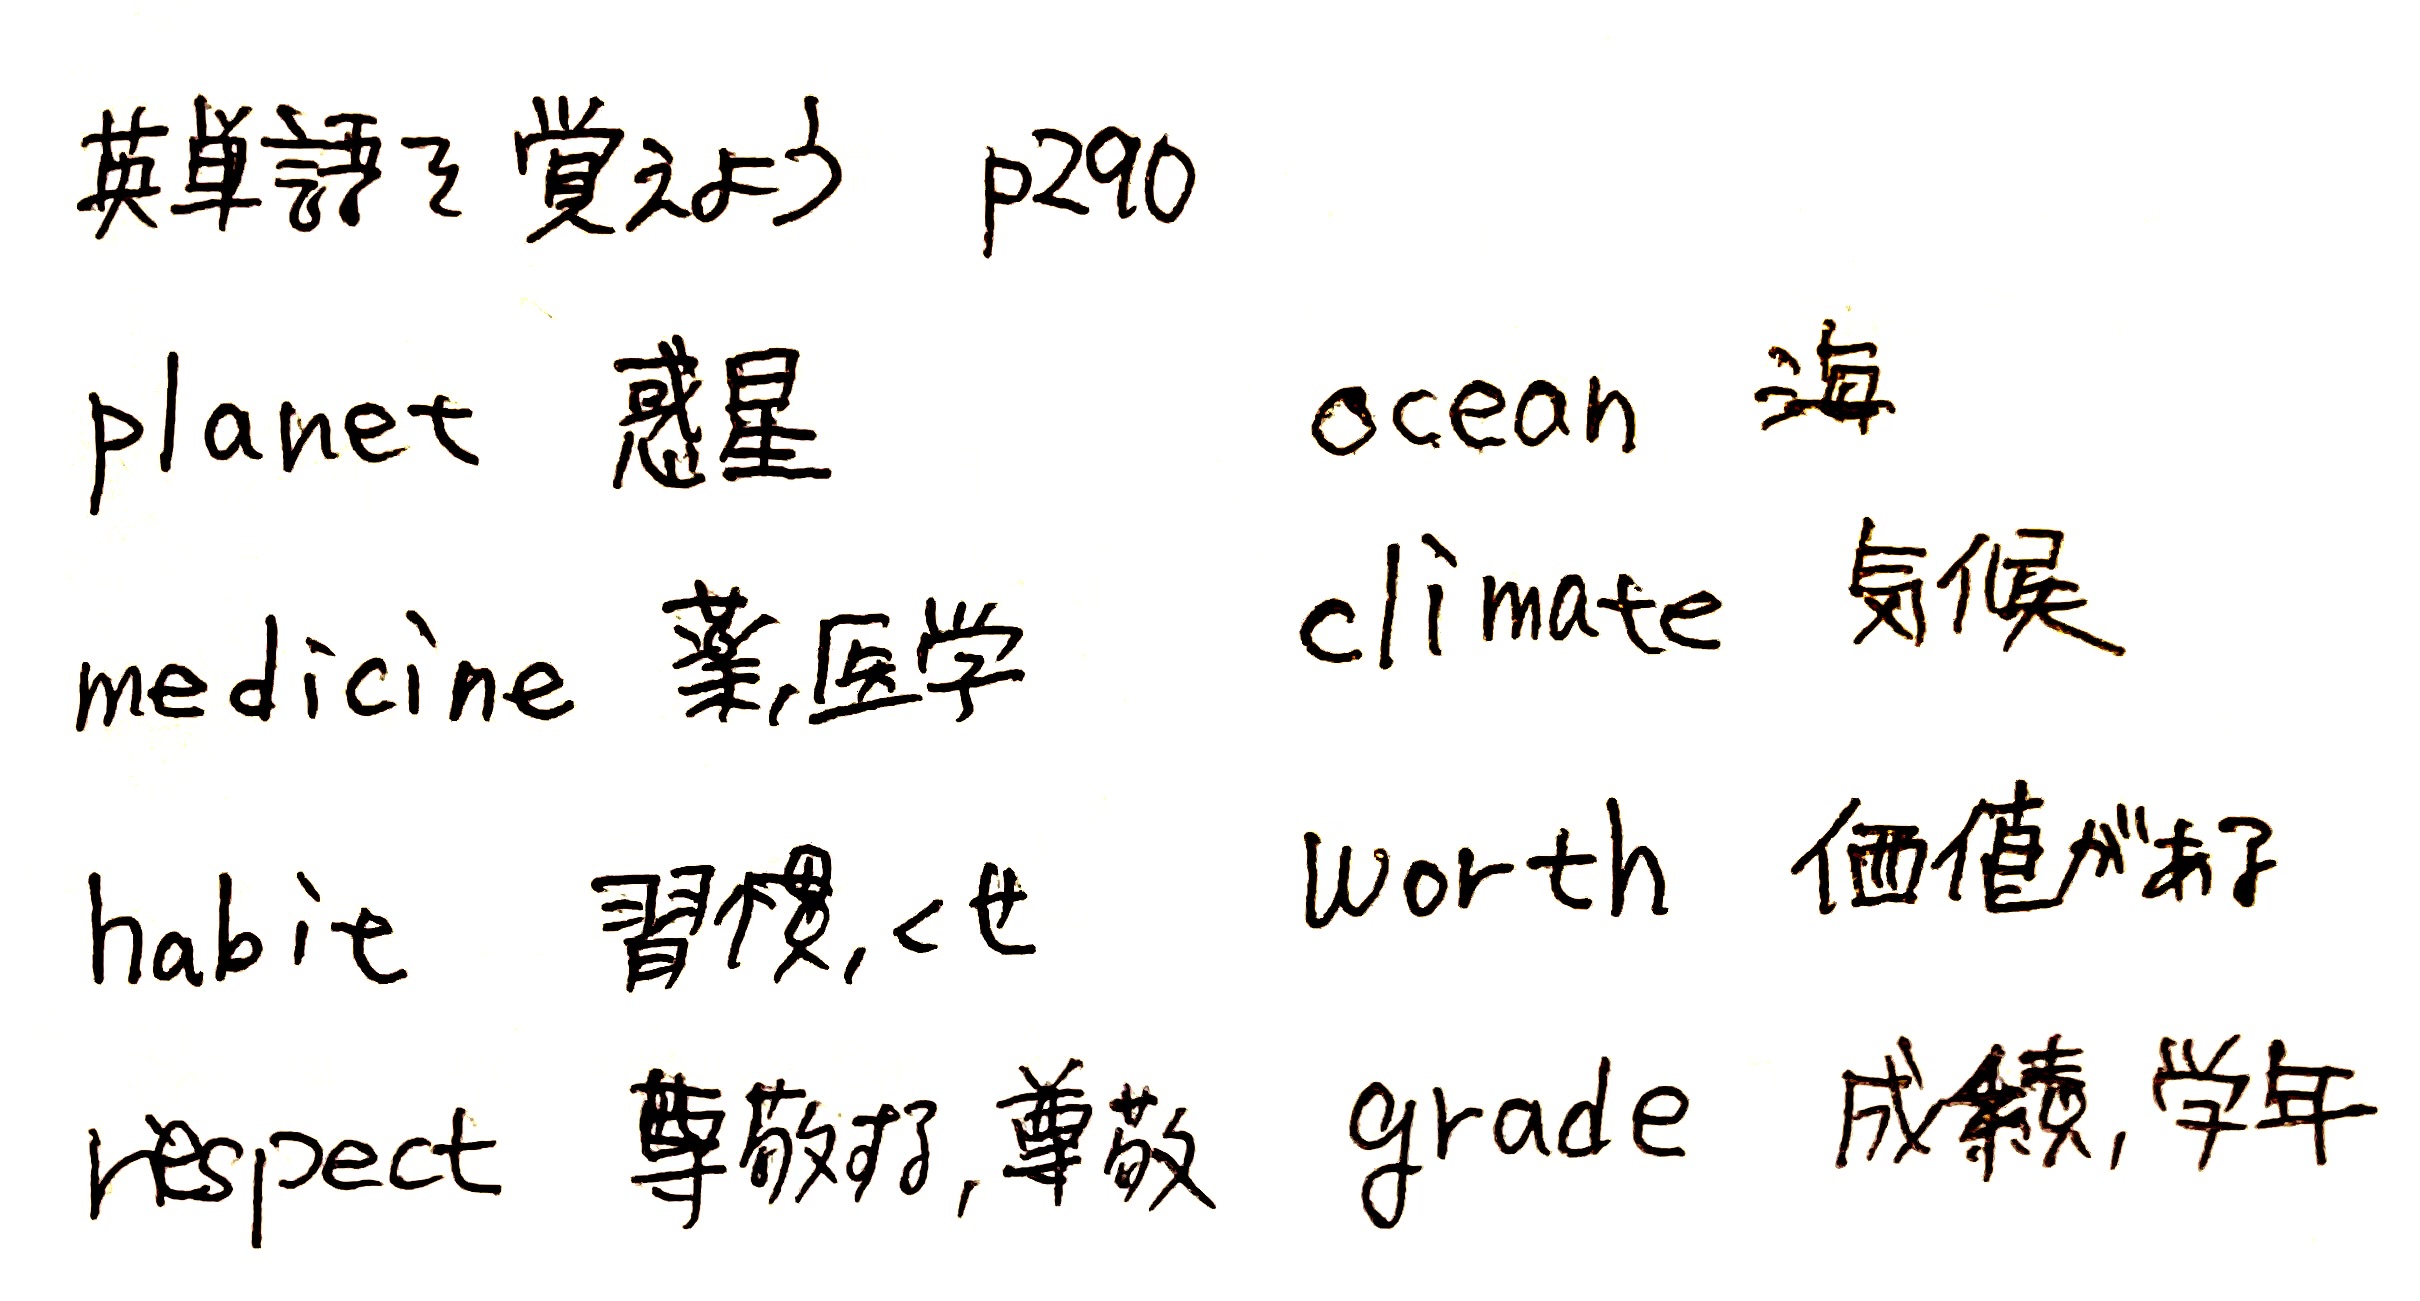 英単語を覚えよう p290
planet 惑星
medicine 薬,医学
habit 習慣,くせ
respect 尊敬する,尊敬
ocean 海
climate 気候
worth 価値がある
grade 成績,学年